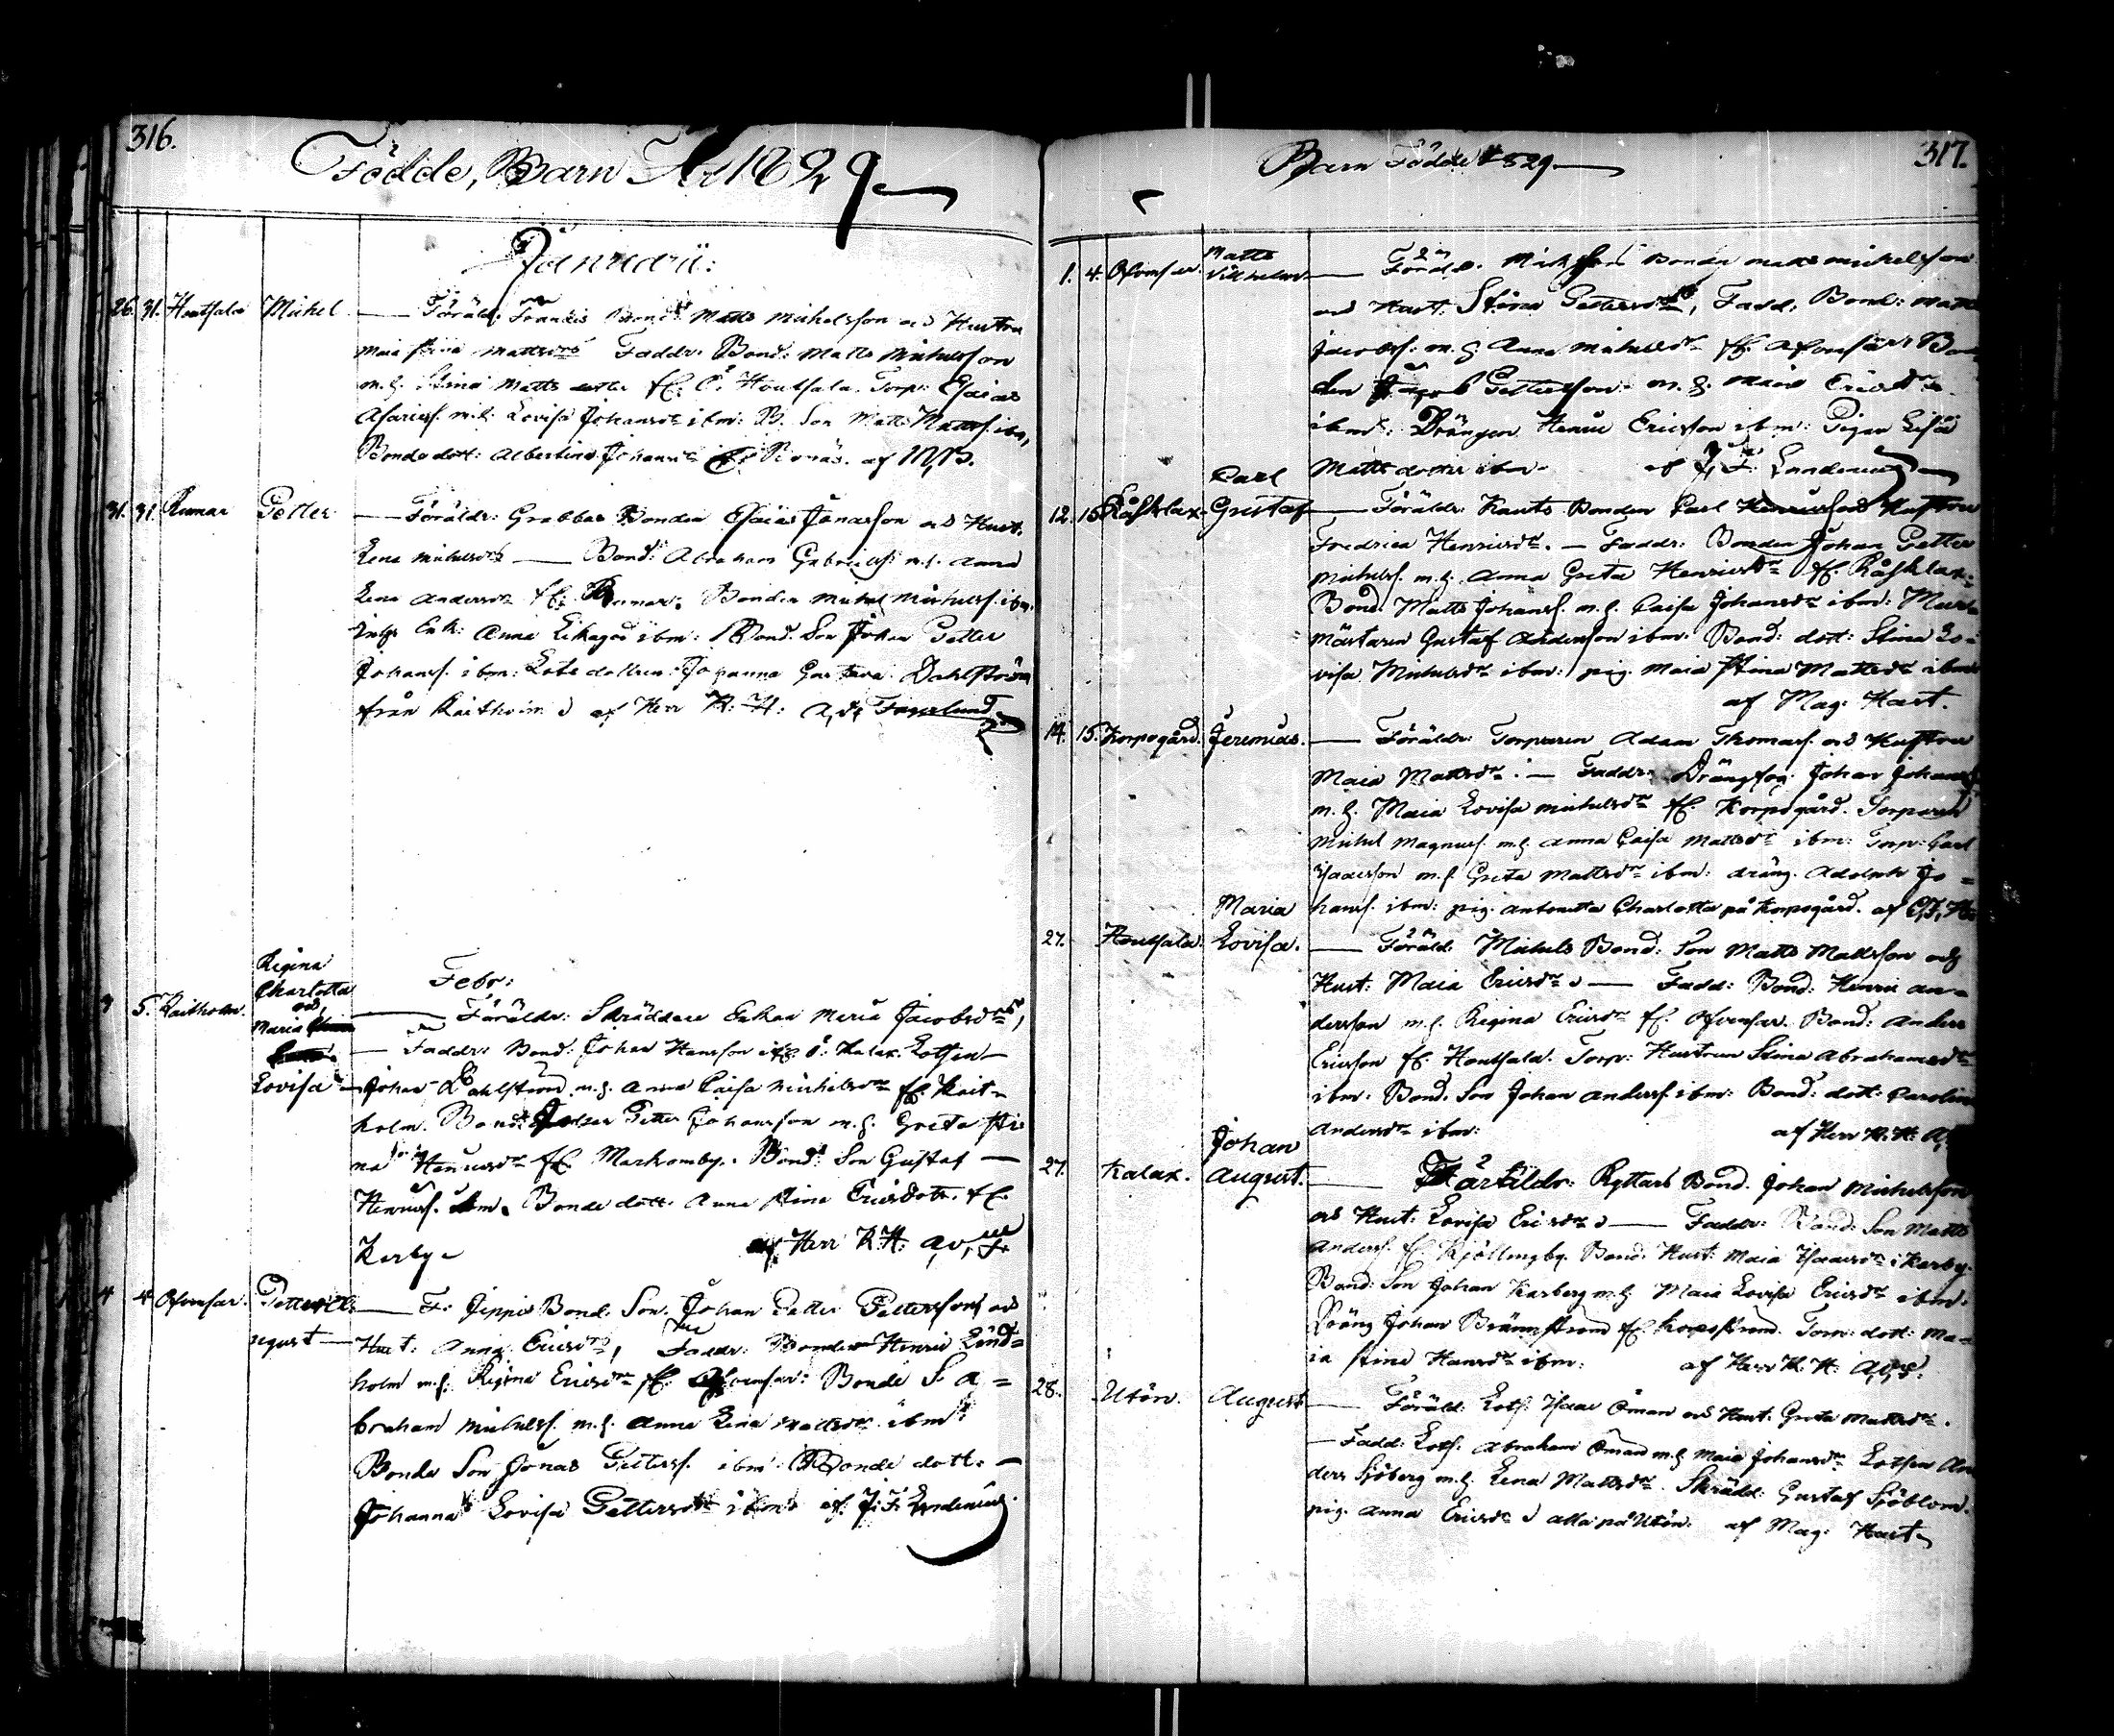 316.
Födde, Barn År 1829
Januarii:
26. 31. Houtsala Michel — Föräldr: Frandis Bond: Matts Michelsson och Hustru
Maia Stina Mattsdr Faddr: Bond: Matts Michelsson
m.h. Stina Matts dotter fr. Ö. Houtsala. Torp: Esaias
Asariess. m.h. Lovisa Johansdr ibm: B. Son Matts Mattss. ibm,
Bonde dott: Albertina Johansdr fr. Ronäs. af
31. 31. Rumar Petter — Föräldr: Grabbas Bonden Esaias Jonasson och Hust.
Lena Michelsdr — Bond: Abraham Gabrielss: m.h. Anna
Lena Andersdr fr. Rumar. Bonden Michel Michelss. ibm.
Enk: Anna ibm: Bond. Son Johan Petter
Johanss. ibm: Lots dottren Johanna Gustava Dahlström
från Kaitholm af Herr K. H: Fagerlund
Febr:
3 5. Kaitholm.
Regina
Charlotta
och
Maria
Lovisa
— Föräldr: Skräddare Enkan Maria Jacobsdr,
— Faddr: Bond: Johan Hansson Ö: Kalax. Lotsen
Johan Dahlström m.h. Anna Caisa Michelsdr fr. Kait-
holm. Bond: Petter Johansson m.h. Greta Sti-
na Henricsdr fr. Markomby. Bond: Son Gustaf —
Henricss. ibm. Bonde dott: Anna Stina Ericsdotr. fr.
Kerby af Herr K.H:
4 4 Ofvensar. Petter
August — F: Jeppis Bond. Son. Johan Petter Pettersson och
Hust: Anna Ericsdr, Faddr: Bonden Henric Lind-
holm m.h. Regina Ericsdr fr. Ofvensar: Bonde S. A-
braham Michelss. m.h. Anna Lena Mattsdr ibm
Bonde Son Jonas Petterss. ibm Bonde dott. —
Johanna Lovisa Pettersdr ibm af J. F. Landenius.
317.
Barn Födde 1829 —
1. 4. Ofvensar. Matts
Vilhelm — Föräldr. Bonden Matts Michelsson
och Hust. Stina Pettersdr, Fadd. Bond: Matts
Jacobss. m.h. Anna Michelsdr fr. Ofvensar Bon-
den Jacob Pettersson m.h. Maia Ericsdr
ibm: Drängen Henric Ericsson ibm: Pigan Lisa
Matts dotter ibm. af J. F. Landenius
12. 15. Råsklax. Carl
Gustaf — Föräldr: Kauts Bonden Carl Henricsson Hustru
Fredrica Henricsdr. — Faddr: Bonden Johan Petter
Michelss. m.h. Anna Greta Henricsdr fr. Råsklax.
Bond. Matts Johanss. m.h. Caisa Johansdr ibm: Mur-
mästaren Gustaf Andersson ibm: Bond: dott: Stina Lo-
visa Michelsdr ibm: pig. Maia Stina Mattsdr ibm
af Mag: Hast.
14. 15. Korpogård. Jeremias. — Föräldr: Torparen Adam Thomass. och Hustru
Maia Mattsdr: — Faddr: Drängfog: Johan Johanss.
m.h. Maia Lovisa Michelsdr fr. Korpogård. Torparen
Michel Magnuss. m.h. Anna Caisa Mattsdr ibm: Torp: Carl
Isaacsson m.h. Greta Mattsdr ibm: dräng. Adolph Jo-
hanss. ibm: pig. Antonetta Charlotta på Korpogård. af
27. Houtsala. Maria
Lovisa. — Föräld: Michels Bond: Son Matts Mattsson och
Hust: Maia Ericsdr — Fadd: Bond: Henric An-
dersson m.h. Regina Ericsdr fr. Ofvensar. Bond: Anders
Ericsson fr. Houtsala. Torp: Hustrun Stina Abrahamsdr
ibm. Bond. Son Johan Anderss. ibm: Bond: dott: Carolina
Andersdr ibm: af Herr K. H:
27. Kalax. Johan
August. — Föräldr: Ryttars Bond. Johan Michelsson
och Hust: Lovisa Ericsdr — Faddr: Bond: Son Matts
Anderss. fr. Kjöllingby. Bond: Hust: Maia Isaacsdr i Kerby.
Bond: Son Johan Karberg m.h. Maia Lovisa Ericsdr ibm.
Dräng Johan Brännström fr. Korpoström. Torp: dott: Ma-
ia Stina Hansdr ibm: af Herr K. H:
28. Utön. August — Föräld: Lots: Isaac Öman och Hust. Greta Mattsdr.
— Fadd: Lots. Abraham Öman m.h. Maia Johansdr. Lotsen An-
ders Sjöberg m.h. Lena Mattsdr. Skrädd: Gustaf Sjöblom.
pig. Anna Ericsdr alla på Utön. af Mag: Hast